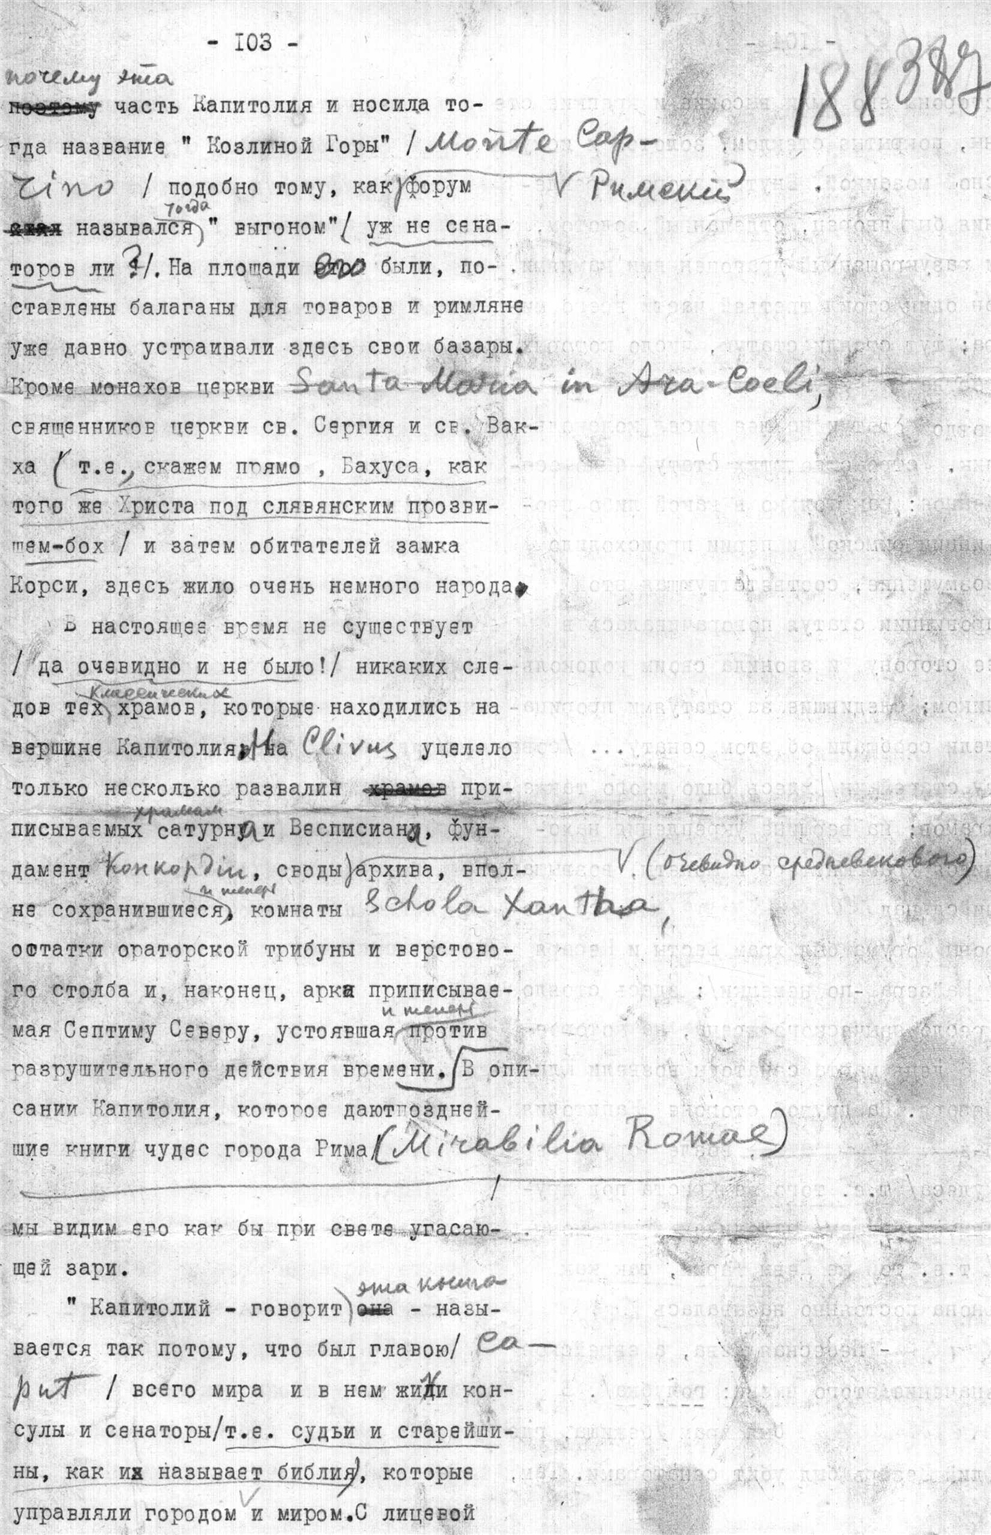 - I03 -
188 387
почему эта
поэтому часть Капитолия и носила то-
гда название " Козлиной Горы" / Monte Cap-
rino / подобно тому, как форум V Римский
тогда
назывался " выгоном"/ уж не сена-
торов ли ?/. На площади его были, по-
ставлены балаганы для товаров и римляне
уже давно устраивали здесь свои базары.
Кроме монахов церкви Santa Maria in Ara-Coeli,
священников церкви св. Сергия и св. Вак-
ха ( т.е., скажем прямо , Бахуса, как
того же Христа под слявянским прозви-
щем-бох / и затем обитателей замка
Корси, здесь жило очень немного народа.
В настоящее время не существует
/ да очевидно и не было!/ никаких сле-
классических
дов тех храмов, которые находились на
вершине Капитолия. На Clivus уцелело
только несколько развалин храмов при-
храмам
писываемых сатурна и Весписиана, фун-
дамент Конкордіи, своды архива, впол- V (очевидно средневекового)
и теперь
не сохранившиеся, комнаты Schola Xantha,
остатки ораторской трибуны и верстово-
го столба и, наконец, арка приписывае-
и теперь
мая Септиму Северу, устоявшая против
разрушительного действия времени. В опи-
сании Капитолия, которое даютпоздней-
шие книги чудес города Рима (Mirabilia Romae)
/
мы видим его как бы при свете угасаю-
щей зари.
эта книга
" Капитолий - говорит она - назы-
вается так потому, что был главою/ Ca-
put / всего мира и в нем жили кон-
сулы и сенаторы/т.е. судьи и старейши-
ны, как их называет библия), которые
управляли городом и миром.С лицевой